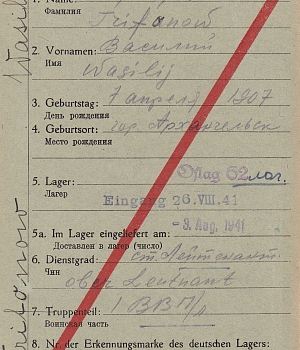 1. Name:
Фамилия
Trifonow
2. Vornamen: Василий
Имя
Wasilij
3. Geburtstag: 7 апреля 1907
День рождения
4. Geburtsort: гор. Архангельск
Место рождения
5. Lager: Oflag 62 лаг.
Лагер
Eingang 26. VIII. 41
- 3. Aug. 1941
5a. Im Lager eingeliefert am:
Доставлен в лагер (число)
6. Dienstgrad: ст. Лейтенант
Чин
ober Leutnant
7. Truppenteil:
Воинская часть
8. Nr. der Erkennungsmarke des deutschen Lagers:
Trifonow
Wasil